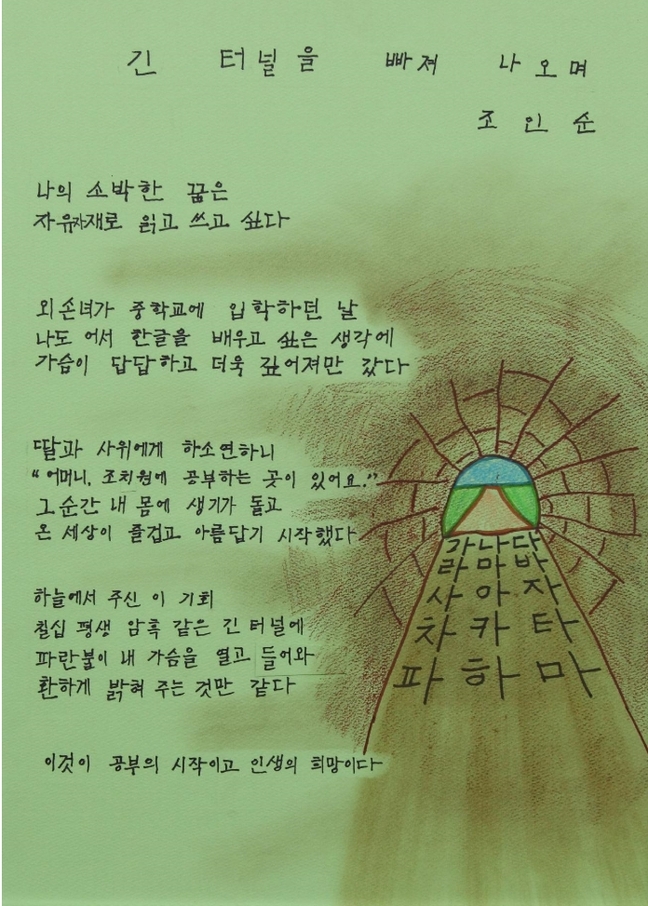 긴 터널을 빠져 나오며
조인순
나의 소박한 꿈은
자유자재로 읽고 쓰고 싶다
외손녀가 중학교에 입학하던 날
나도 어서 한글을 배우고 싶은 생각에
가슴이 답답하고 더욱 깊어져만 갔다
딸과 사위에게 하소연하니
"어머니, 조치원에 공부하는 곳이 있어요."
그 순간 내 몸에 생기가 돌고
온 세상이 즐겁고 아름답기 시작했다
하늘에서 주신 이 기회
칠십 평생 암흑 같은 긴 터널에
파란불이 내 가슴을 열고 들어와
환하게 밝혀 주는 것만 같다
이것이 공부의 시작이고 인생의 희망이다
가나다
라마바
사아자
차카타
파하마